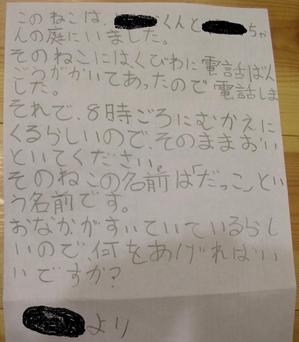 このねこは、くんとちゃ
んの庭にいました。
そのねこにはくびわに電話ばん
ごうがかいてあったので電話しま
した。
それで、8時ごろにむかえに
くるらしいので、そのままおい
といてください。
そのねこの名前はだっこ、とい
う名前です。
おなかがすいているらし
いので、何をあげればい
いですか?
より